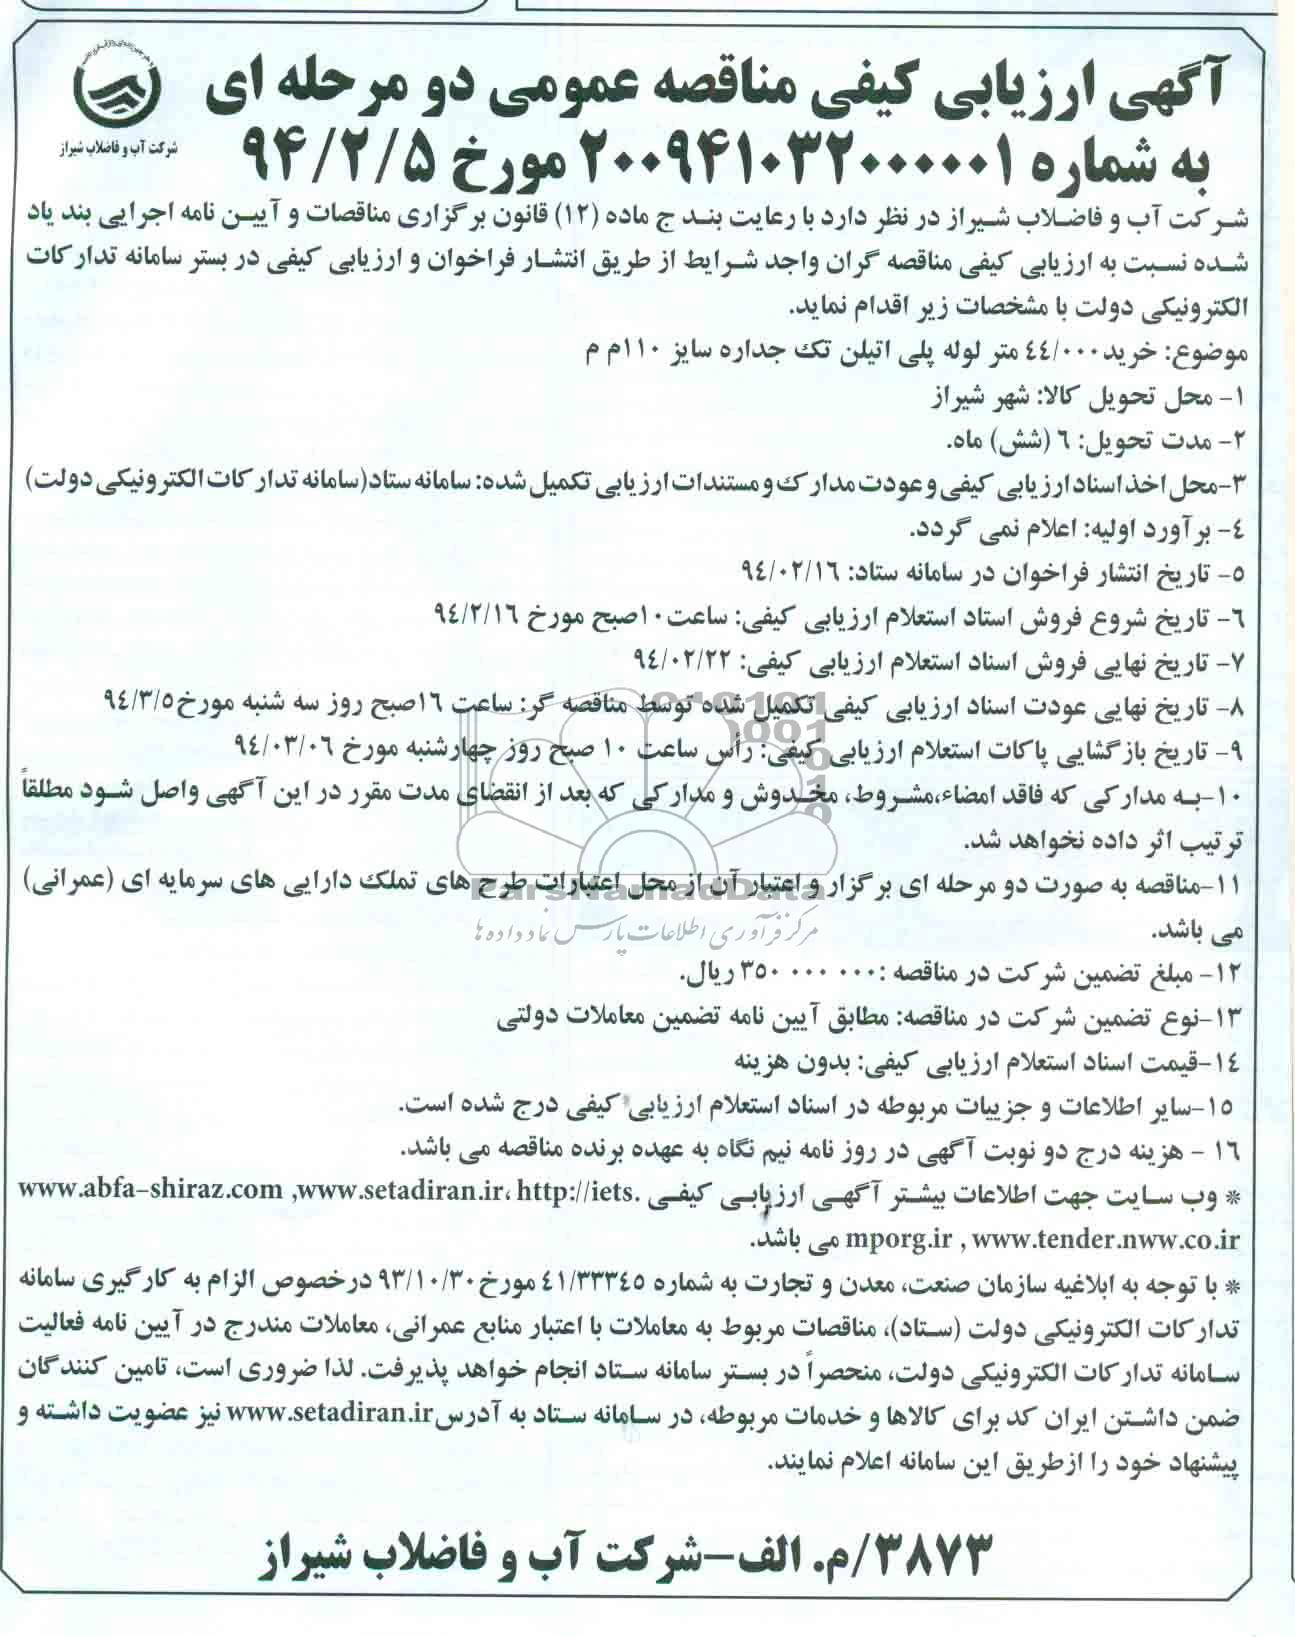 آگهی ارزیابی کیفی مناقصه عمومی دو مرحله ای
به شماره ۲۰۰۹۴۱۰۳۲۰۰۰۰۰۱ مورخ ۹۴/۲/۵
شرکت آب و فاضلاب شیراز
شرکت آب و فاضلاب شیراز در نظر دارد با رعایت بند ج ماده (۱۲) قانون برگزاری مناقصات و آیین نامه اجرایی بند یاد
شده نسبت به ارزیابی کیفی مناقصه گران واجد شرایط از طریق انتشار فراخوان و ارزیابی کیفی در بستر سامانه تدارکات
الکترونیکی دولت با مشخصات زیر اقدام نماید.
موضوع: خرید ۴۴/۰۰۰ متر لوله پلی اتیلن تک جداره سایز ۱۱۰م م
۱- محل تحویل کالا: شهر شیراز
۲- مدت تحویل: ۶ (شش) ماه.
۳-محل اخذ اسناد ارزیابی کیفی و عودت مدارک و مستندات ارزیابی تکمیل شده: سامانه ستاد(سامانه تدارکات الکترونیکی دولت)
۴- برآورد اولیه: اعلام نمی گردد.
۵- تاریخ انتشار فراخوان در سامانه ستاد: ۹۴/۰۲/۱۶
۶- تاریخ شروع فروش اسناد استعلام ارزیابی کیفی: ساعت۱۰صبح مورخ ۹۴/۲/۱۶
۷- تاریخ نهایی فروش اسناد استعلام ارزیابی کیفی: ۹۴/۰۲/۲۲
۸- تاریخ نهایی عودت اسناد ارزیابی کیفی تکمیل شده توسط مناقصه گر: ساعت ۱۶صبح روز سه شنبه مورخ۹۴/۳/۵
۹- تاریخ بازگشایی پاکات استعلام ارزیابی کیفی: رأس ساعت ۱۰ صبح روز چهارشنبه مورخ ۹۴/۰۳/۰۶
۱۰-به مدارکی که فاقد امضاء،مشروط، مخدوش و مدارکی که بعد از انقضای مدت مقرر در این آگهی واصل شود مطلقاً
ترتیب اثر داده نخواهد شد.
۱۱-مناقصه به صورت دو مرحله ای برگزار و اعتبار آن از محل اعتبارات طرح های تملک دارایی های سرمایه ای (عمرانی)
ParsNamadData
مرکز فرآوری اطلاعات پارس نماد داده ها
می باشد.
۱۲- مبلغ تضمین شرکت در مناقصه :۳۵۰ ۰۰۰ ۰۰۰ ریال.
۱۳-نوع تضمین شرکت در مناقصه: مطابق آیین نامه تضمین معاملات دولتی
۱۴-قیمت اسناد استعلام ارزیابی کیفی: بدون هزینه
۱۵-سایر اطلاعات و جزییات مربوطه در اسناد استعلام ارزیابی کیفی درج شده است.
۱۶ - هزینه درج دو نوبت آگهی در روز نامه نیم نگاه به عهده برنده مناقصه می باشد.
* وب سایت جهت اطلاعات بیشتر آگهی ارزیابی کیفی www.abfa-shiraz.com ,www.setadiran.ir، http://iets.
mporg.ir , www.tender.nww.co.ir می باشد.
* با توجه به ابلاغیه سازمان صنعت، معدن و تجارت به شماره ۴۱/۳۳۳۴۵ مورخ ۹۳/۱۰/۳۰ درخصوص الزام به کارگیری سامانه
تدارکات الکترونیکی دولت (ستاد)، مناقصات مربوط به معاملات با اعتبار منابع عمرانی، معاملات مندرج در آیین نامه فعالیت
سامانه تدارکات الکترونیکی دولت، منحصراً در بستر سامانه ستاد انجام خواهد پذیرفت. لذا ضروری است، تامین کنندگان
ضمن داشتن ایران کد برای کالاها و خدمات مربوطه، در سامانه ستاد به آدرس www.setadiran.ir نیز عضویت داشته و
پیشنهاد خود را ازطریق این سامانه اعلام نمایند.
۳۸۷۳/م. الف-شرکت آب و فاضلاب شیراز